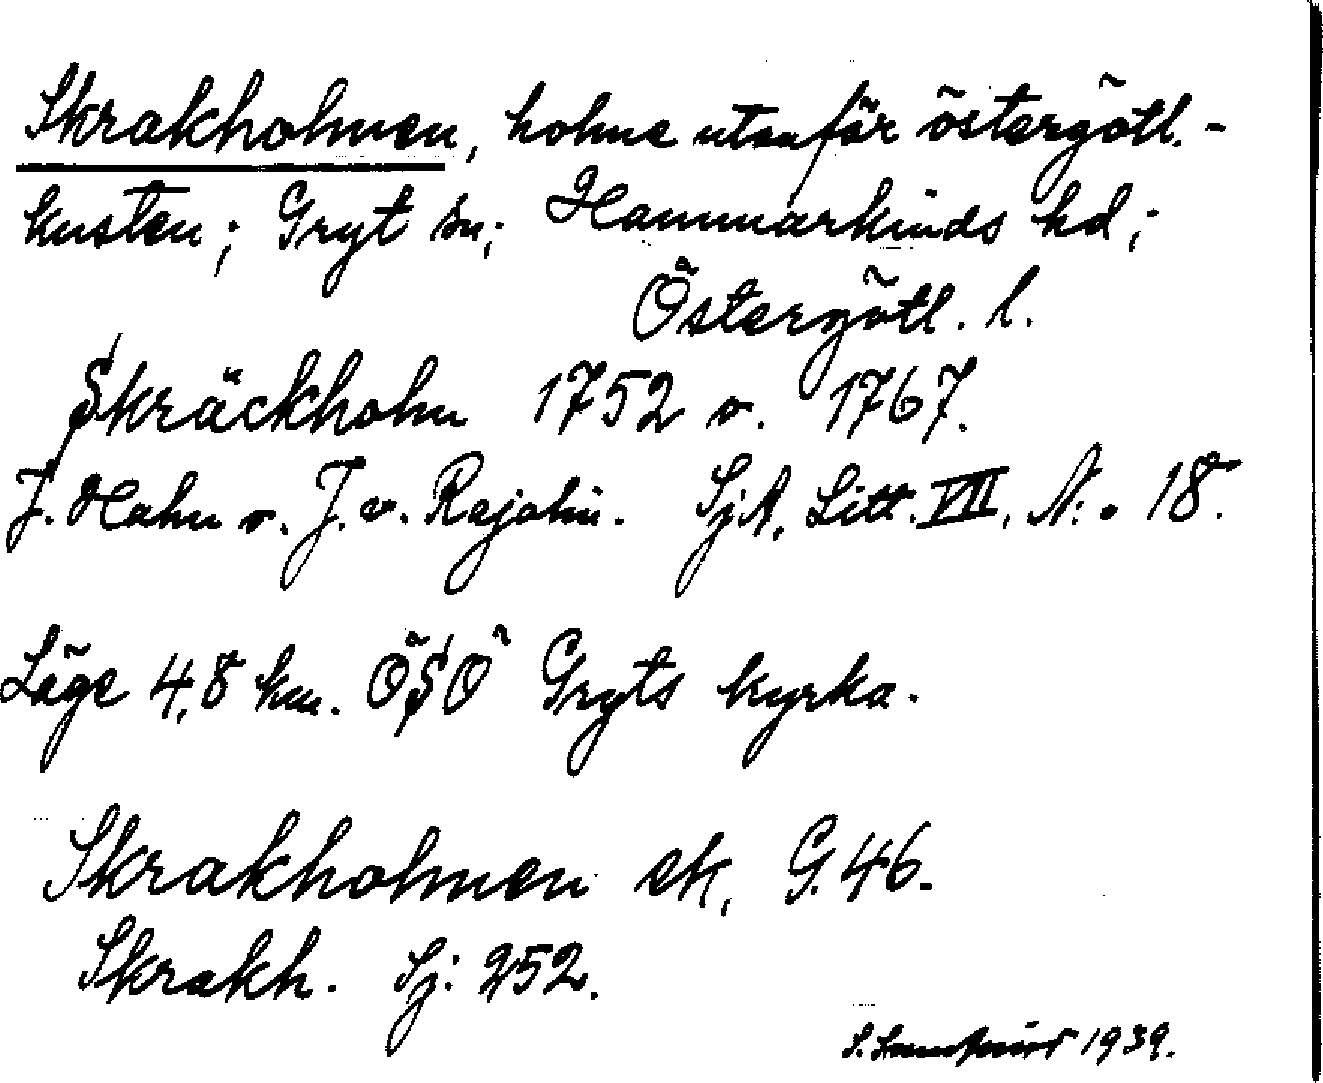 Skrakholmen, holme utanför östergötl.-
kusten; Gryt sn; Hammarkinds hd;
Östergötl. l.
Skräckholm 1752 o. 1767.
J. Hahn o. J. v. Rajalin. SjA, Litt. VII, N:o 18.
Läge 4,8 km. ÖSÖ Gryts kyrka.
Skrakholmen ek, G. 46.
Skrakh. Sj: 252.
S. 1939.